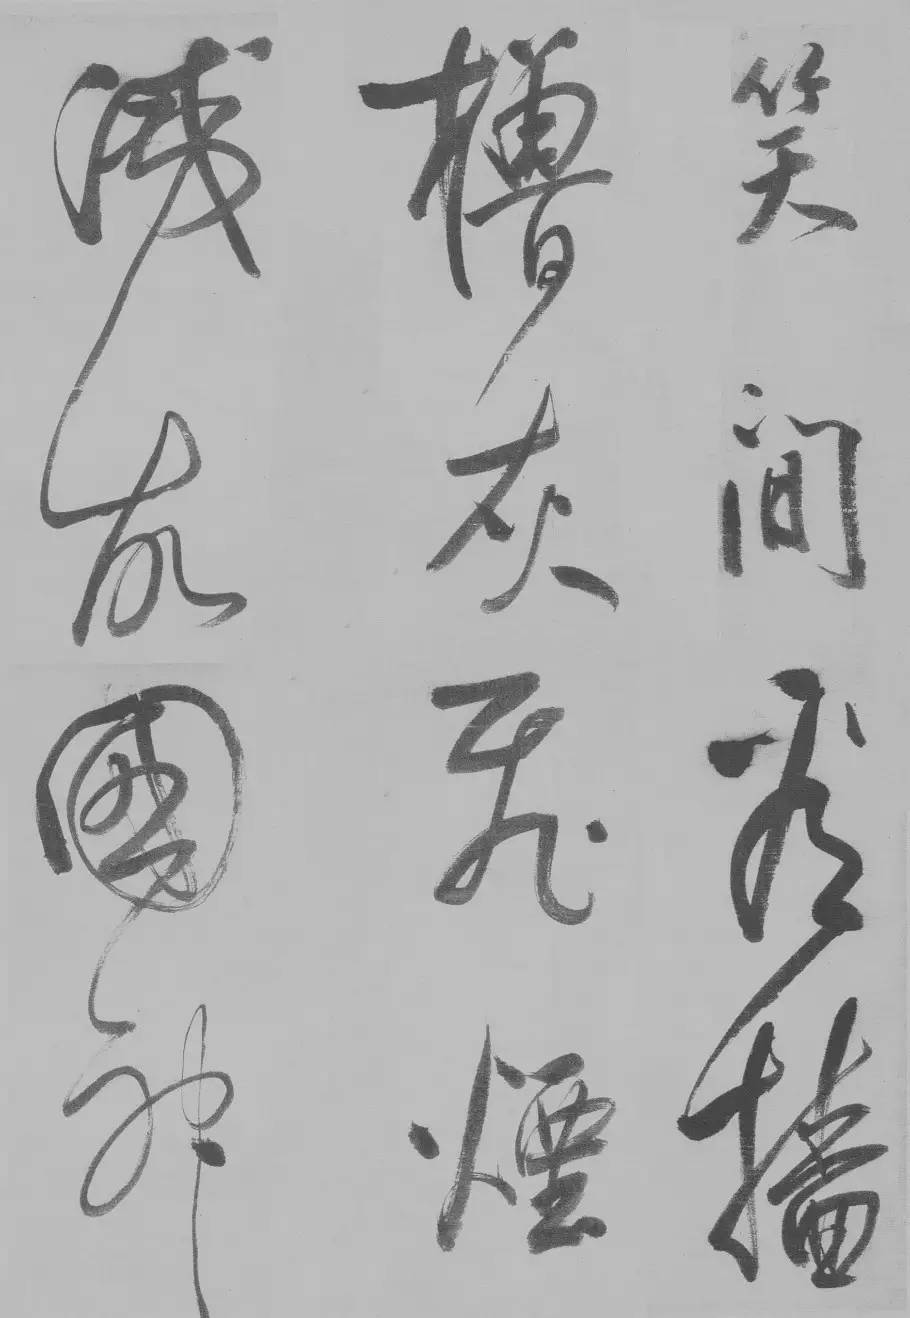 笑間看檣
櫓灰飛煙
滅故國神